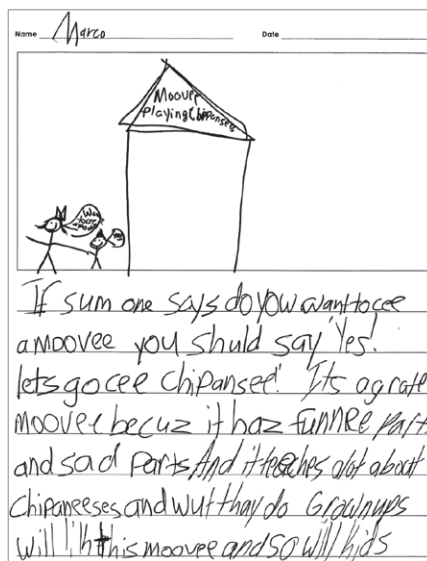 Name Marco Date
Moovee
Playing Chippansee
If sum one says do you want to cee
a moovee you shuld say Yes!
lets go cee Chipansee! Its a grate
moovee becuz it haz funnee part
and sad parts And it teaches alot about
chipaneeses and wut thay do Grownups
will lik this moovee and so will kids